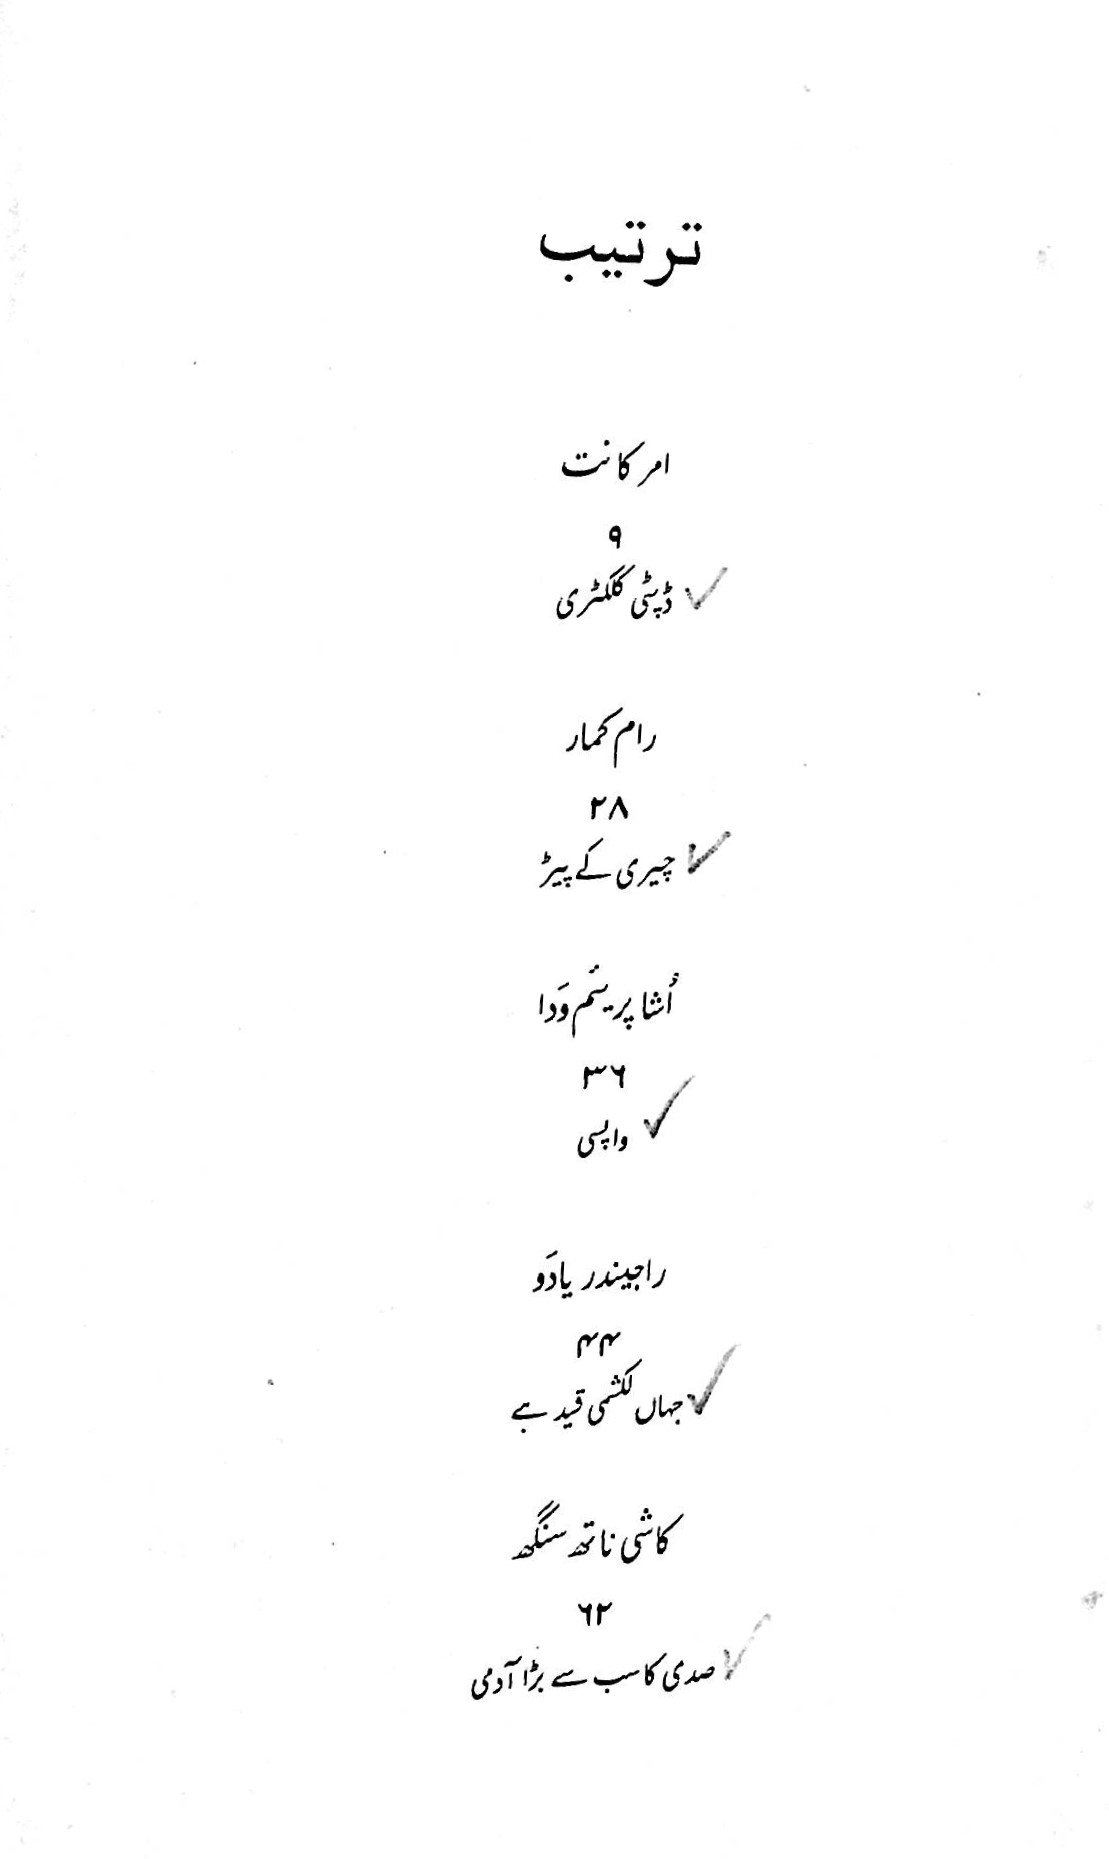 ترتیب
امر کانت
۹
ڈپٹی کلکٹری
رام کمار
۲۸
چیری کے پیڑ
اُشا پریئم وَدا
۳۶
واپسی
راجیندر یادَو
۴۴
جہاں لکشمی قید ہے
کاشی ناتھ سنگھ
۶۲
صدی کا سب سے بڑا آدمی